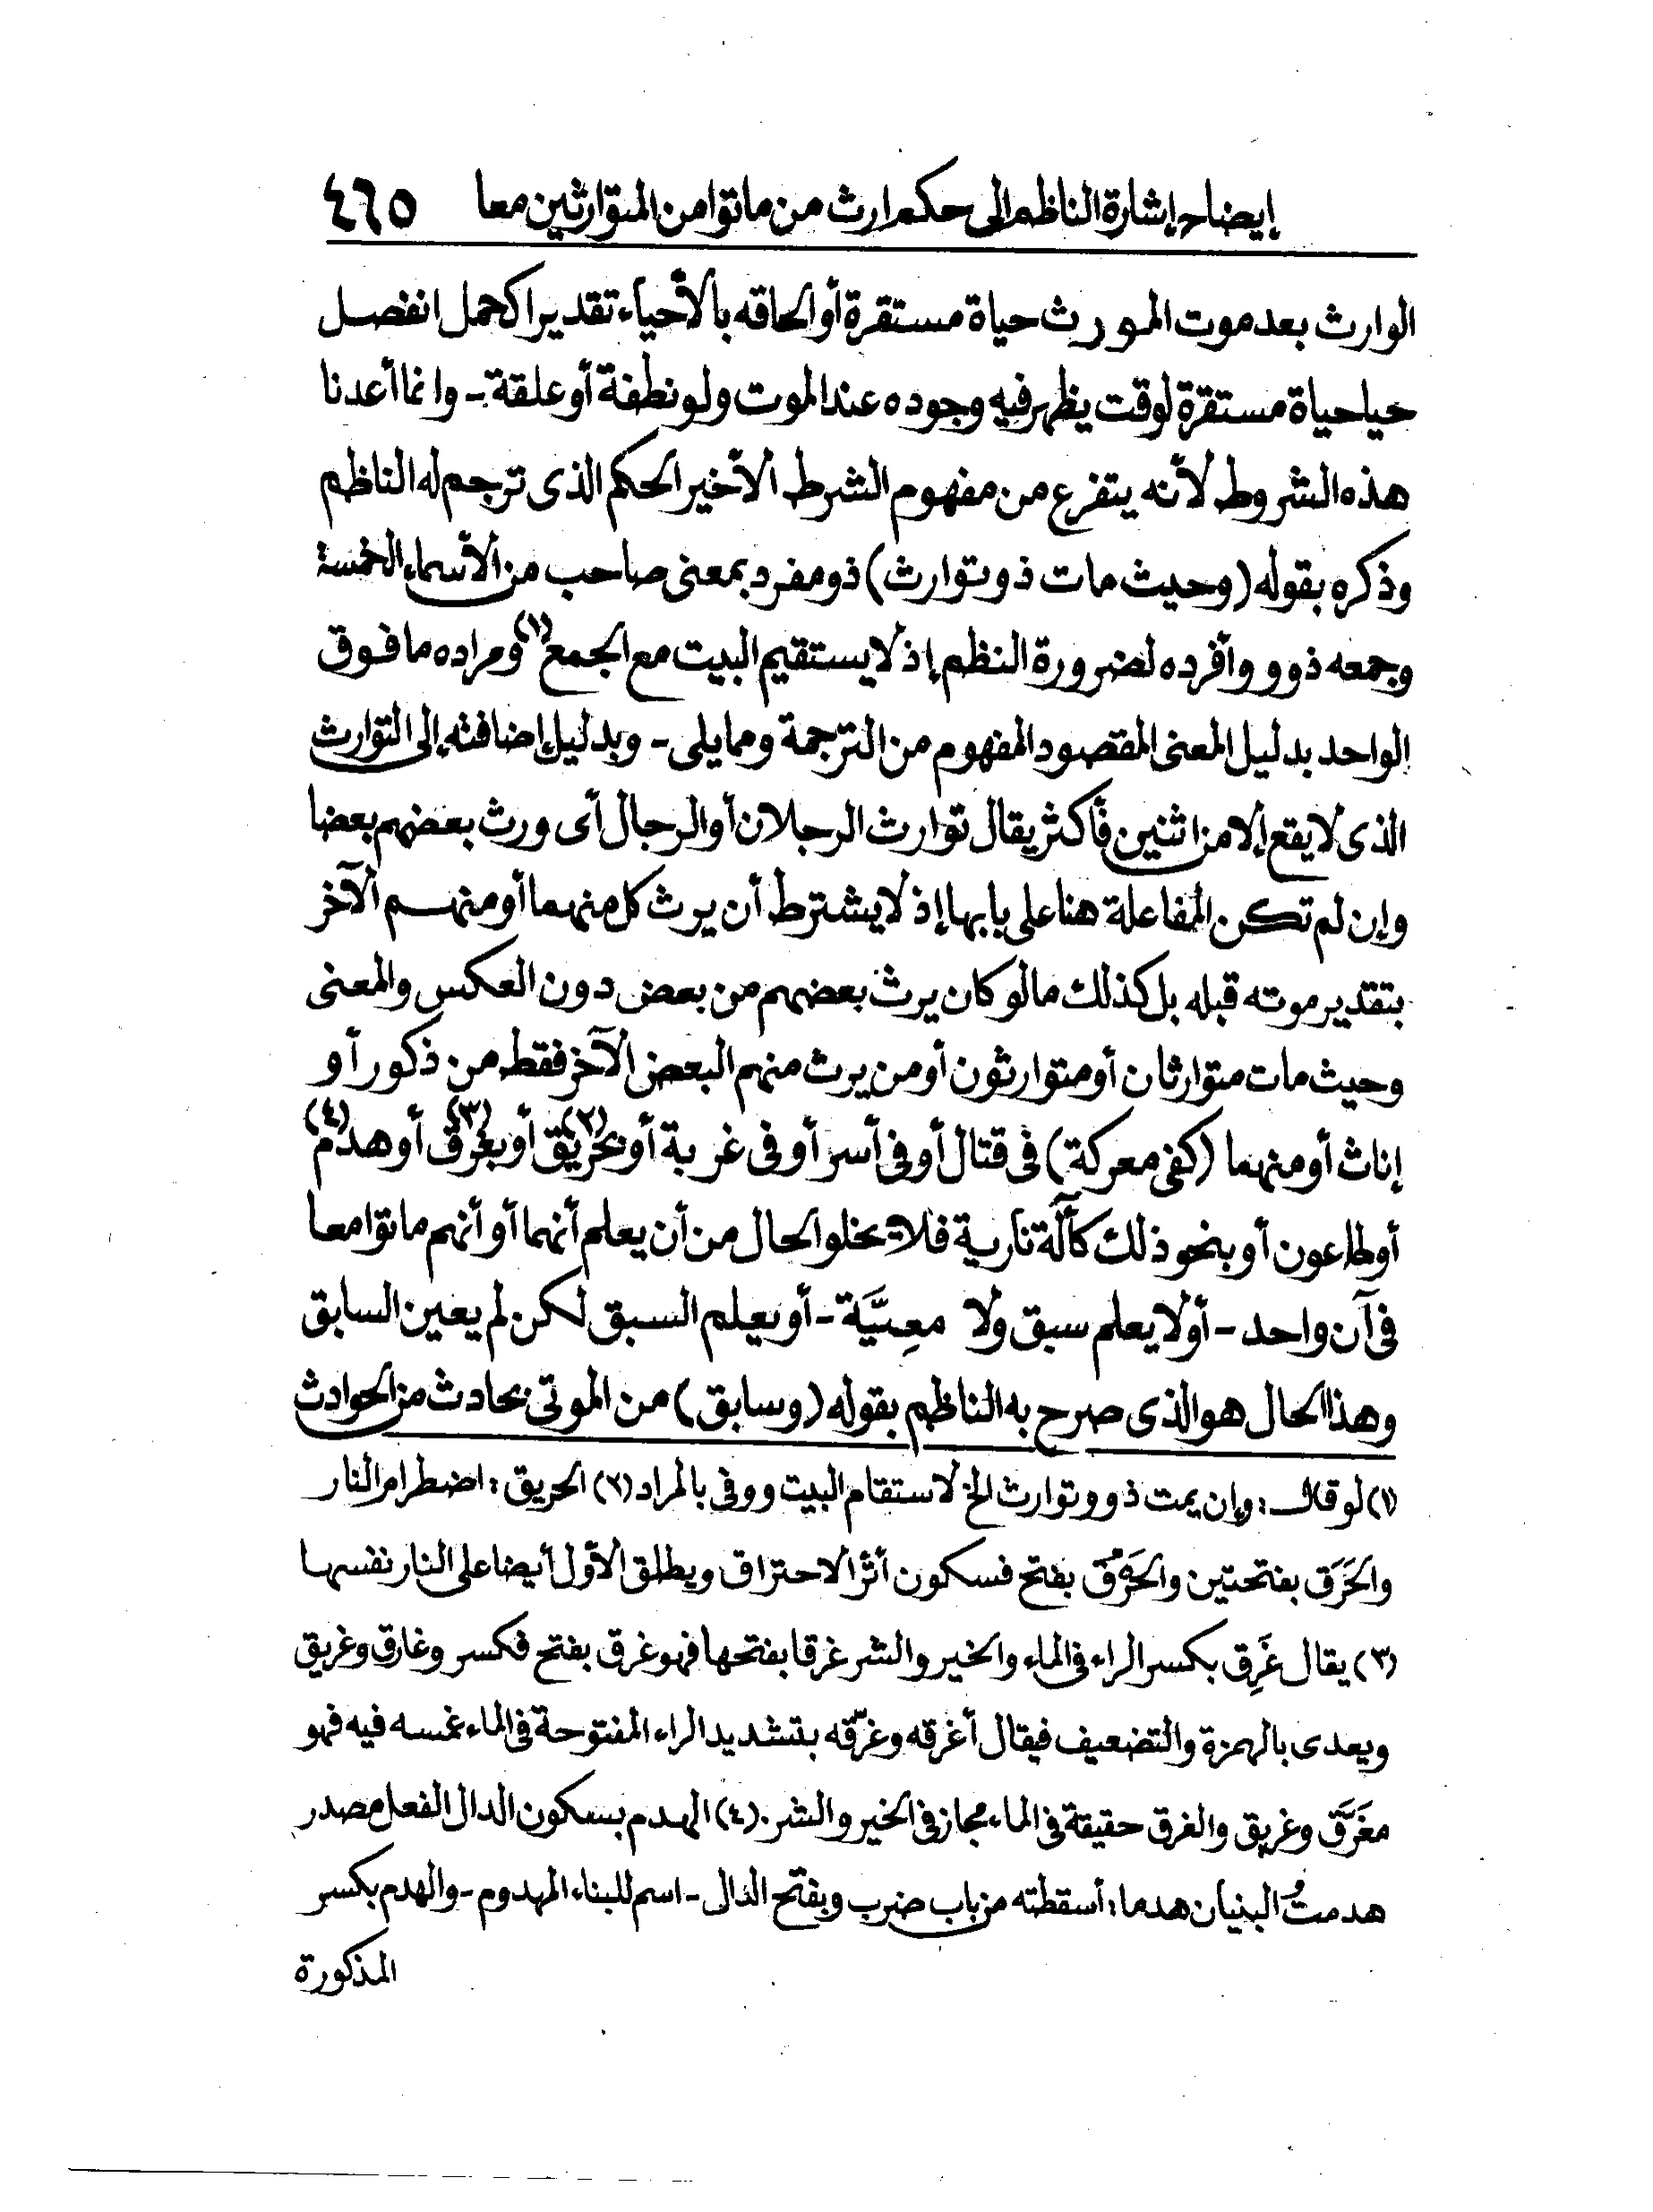 إيضاح إشارة الناظم إلى حكم إرث من ماتوا من المتوارثين معا ٤٦٥
الوارث بعد موت المورث حياة مستقرة أو الحاقه بالأحياء تقديرا كحمل انفصل
حيا حياة مستقرة لوقت يظهر فيه وجوده عند الموت ولو نطفة أو علقة - وانما أعدنا
هذه الشروط لأنه يتفرع من مفهوم الشرط الأخير الحكم الذى ترجم له الناظم
وذكره بقوله (وحيث مات ذو توارث) ذو مفرد بمعنى صاحب من الأسماء الخمسة
وجمعه ذوو وأفرده لضرورة النظم إذ لا يستقيم البيت مع الجمع (١) ومراده ما فوق
الواحد بدليل المعنى المقصود المفهوم من الترجمة ومما يلى - وبدليل إضافته إلى التوارث
الذى لا يقع إلا من اثنين فأكثر يقال توارث الرجلان أو الرجال أى ورث بعضهم بعضا
وإن لم تكن المفاعلة هنا على بابها إذ لا يشترط أن يرث كل منهما أو منهم الآخر
بتقدير موته قبله بل كذلك ما لو كان يرث بعضهم من بعض دون العكس والمعنى
وحيث مات متوارثان أو متوارثون أو من يرث منهم البعض الآخر فقط من ذكور أو
إناث أو منهما (كفى معركة) فى قتال أو فى أسر أو فى غربة أو بحريق (٢) أو بغرق (٣) أو هدم (٤)
أو طاعون أو بنحو ذلك كآلة نارية فلا يخلو الحال من أن يعلم أنهما أو أنهم ماتوا معا
فى آن واحد - أو لا يعلم سبق ولا معِيَّة - أو يعلم السبق لكن لم يعين السابق
وهذا الحال هو الذى صرح به الناظم بقوله (وسابق) من الموتى بحادث من الحوادث
(١) لو قال : وإن يمت ذوو توارث الخ لاستقام البيت ووفى بالمراد (٢) الحريق : اضطرام النار
والحَرَق بفتحتين والحَرْق بفتح فسكون أثر الاحتراق ويطلق الأول أيضا على النار نفسها
(٣) يقال غَرِق بكسر الراء فى الماء والخير والشر غرقا بفتحها فهو غرق بفتح فكسر وغارق وغريق
ويعدى بالهمزة والتضعيف فيقال أغرقه وغرّقه بتشديد الراء المفتوحة فى الماء غمسه فيه فهو
مغَرَّق وغريق والغرق حقيقة فى الماء مجاز فى الخير والشر . (٤) الهدم بسكون الدال الفعل مصدر
هدمتُ البنيان هدما : أسقطته من باب ضرب وبفتح الدال - اسم للبناء المهدوم - والهدم بكسر
المذكورة